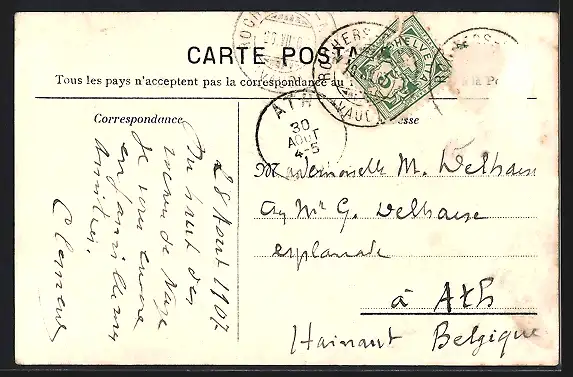 CARTE POSTA
Tous les pays n'acceptent pas la correspondance au
Correspondance
esse
HELVETIA
5
ATH
30
AOUT
4-5
28 Aout 1907
Du haut des
rochers de Naye
Je vous envoie
Amitiés.
Clement
Mademoiselle M. Delhaise
Mr G. Delhaise
esplanade
à Ath
Hainaut Belgique